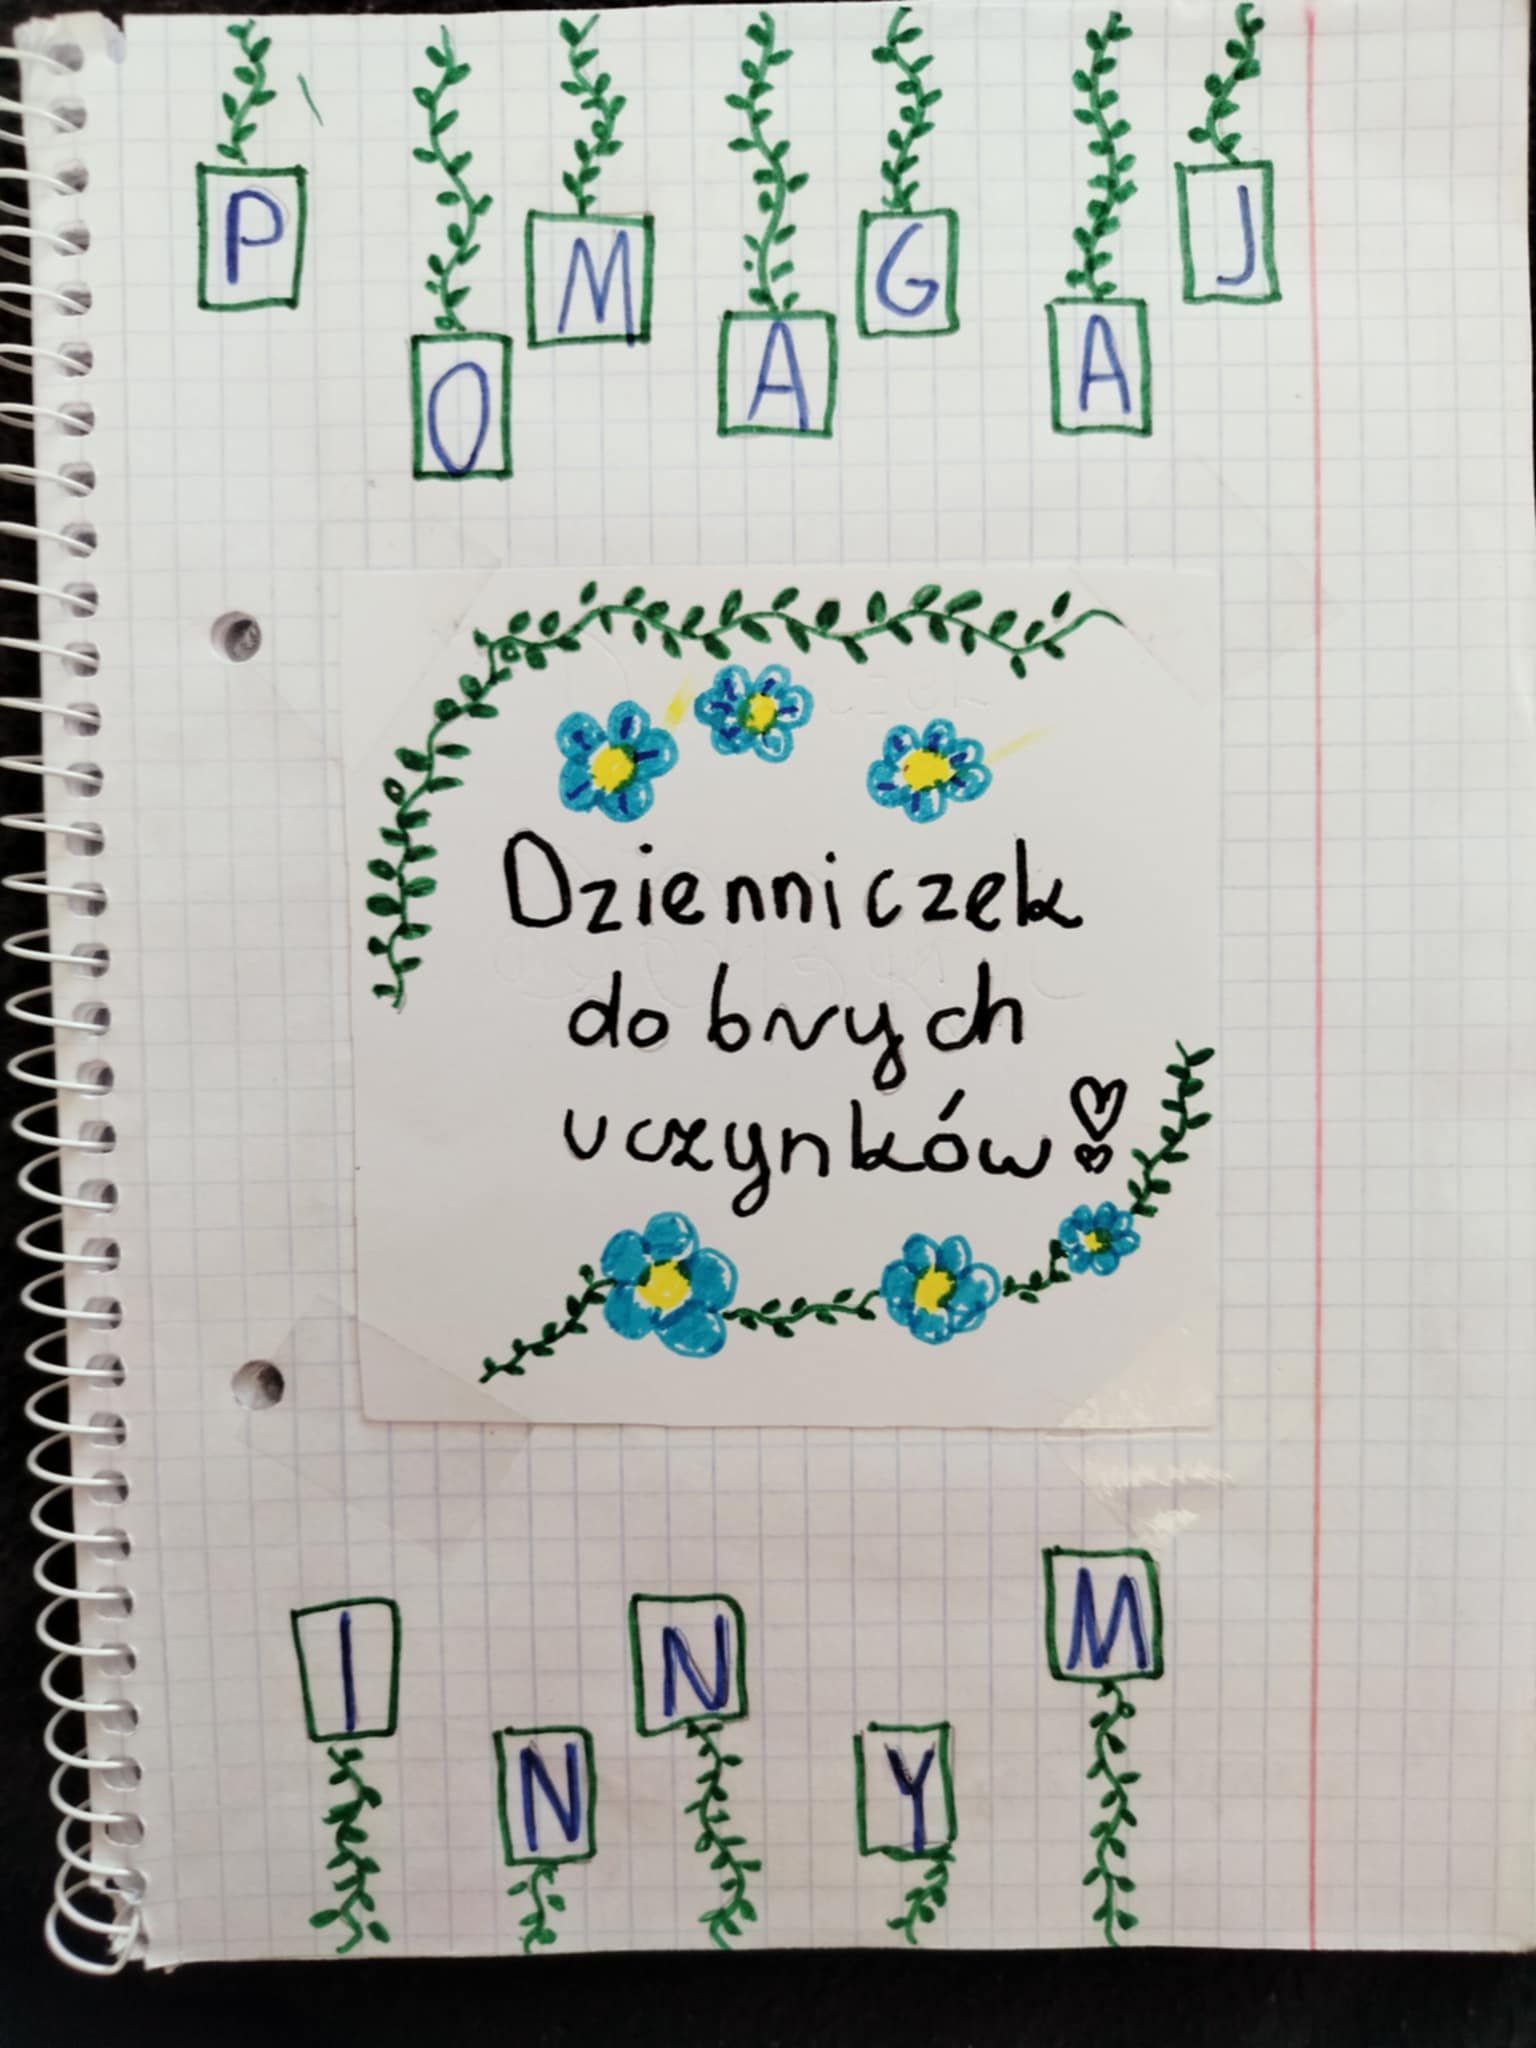 POMAGAJ
Dzienniczek
dobrych
uczynków!
INNYM